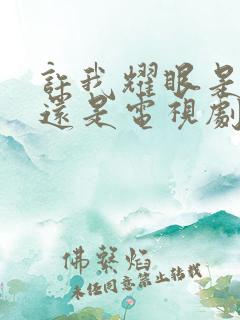 許我耀眼是
還是電視劇
佛繫焰
未经同意禁止转载